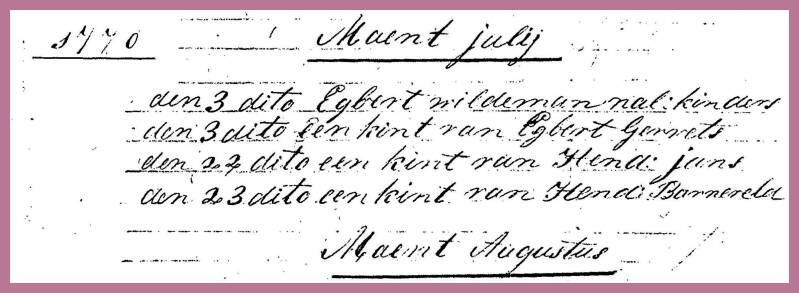 1770 Maent julij
den 3 dito Egbert wildeman nal: kinders
den 3 dito Een kint van Egbert Gerrets
den 22 dito een kint van Hend: jans
den 23 dito een kint van Hend: Barneveld
Maent Augustus